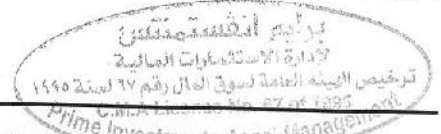 برايم انفستمنتس
لإدارة الاستثمارات المالية
ترخيص الهيئه العامة لسوق المال رقم ٦٧ لسنة ١٤٤٥
C.M.A License No. 67 of
Prime Investments Asset Management